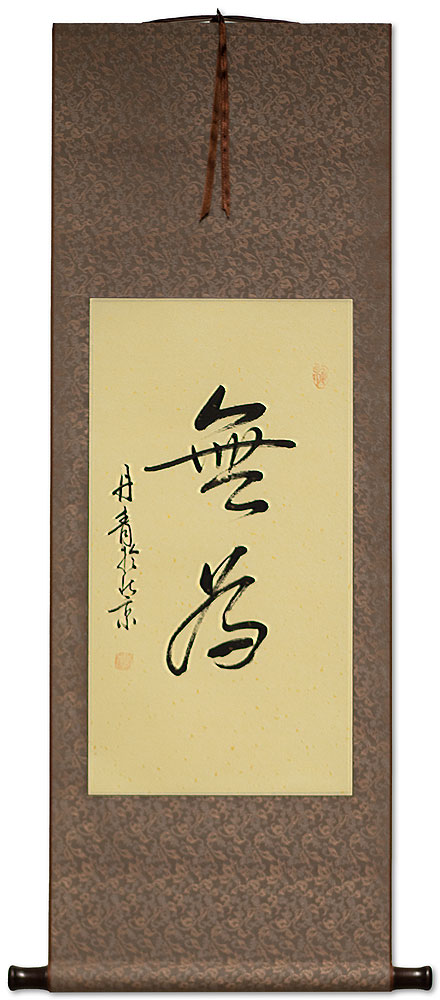 無為
丹青於北京